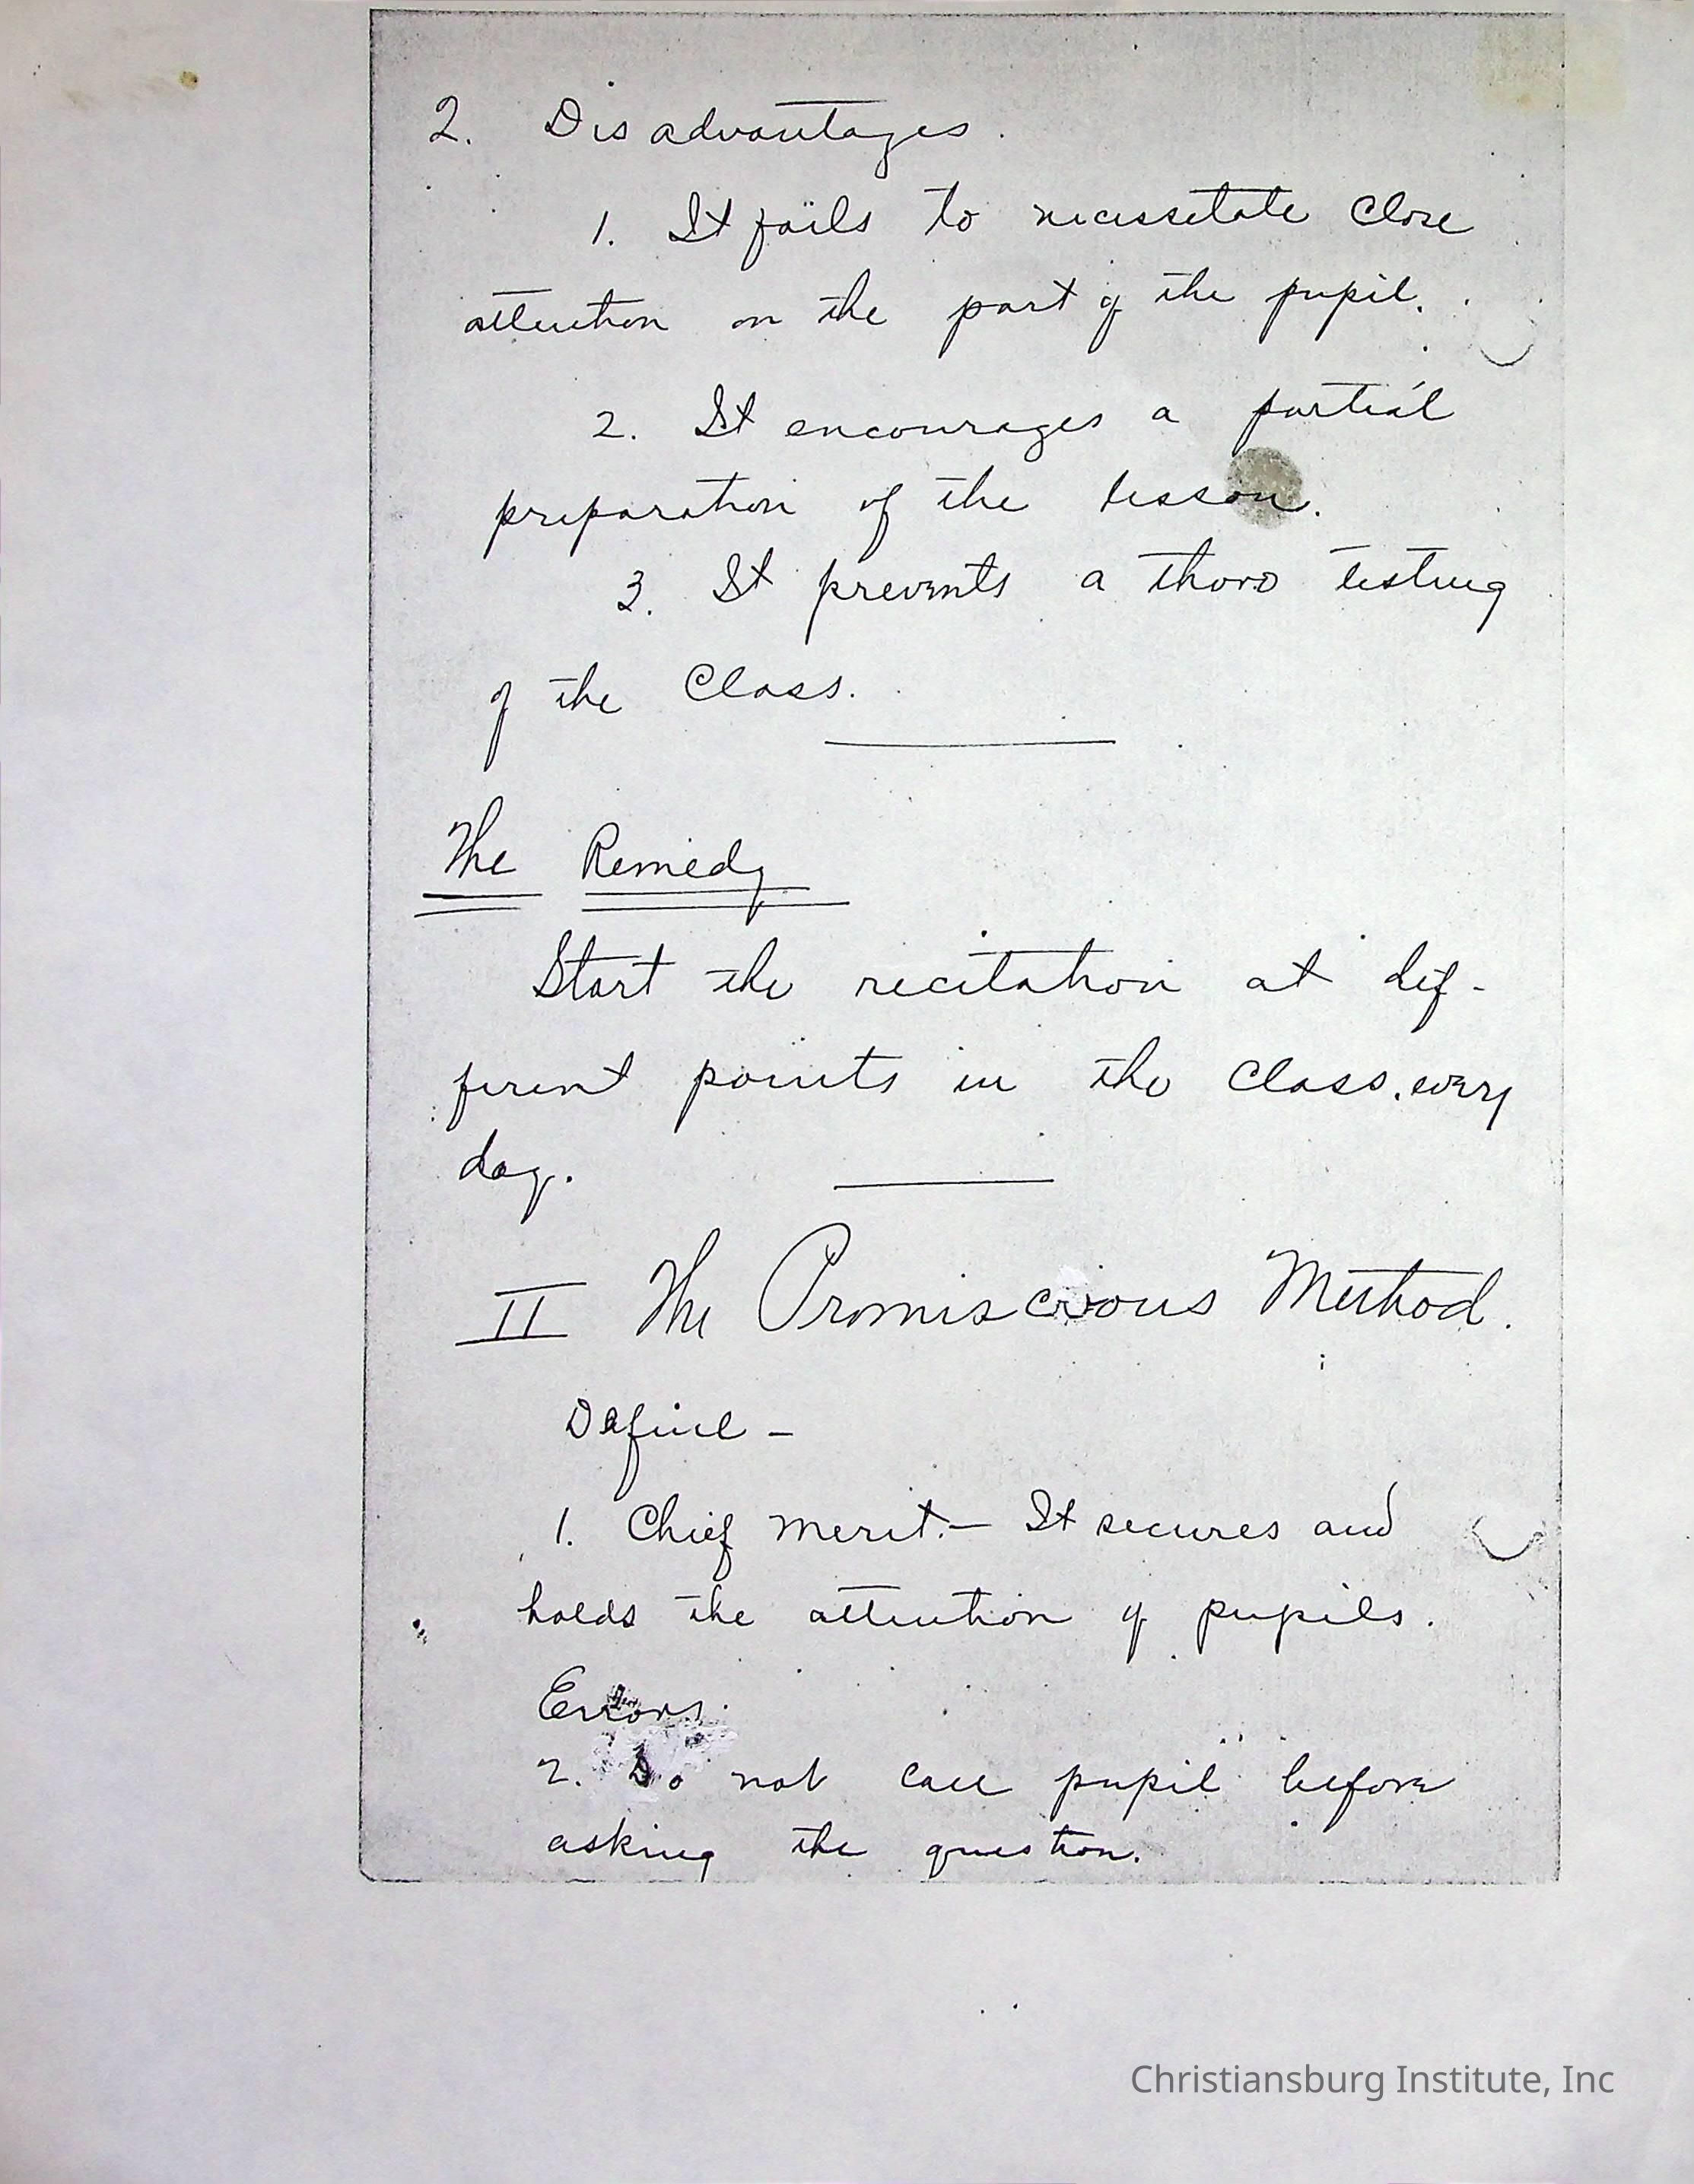 2. Disadvantages.
1. It fails to necessetate close
attention on the part of the pupil.
2. It encourages a partial
preparation of the lesson.
3. It prevents a thoro testing
of the Class.
The Remedy
Start the recitation at dif-
ferent points in the Class, every
day.
II The Promiscuous Method.
Define -
1. Chief merit. — It secures and
holds the attention of pupils.
Errors.
2. Do not call pupil before
asking the question.
Christiansburg Institute, Inc